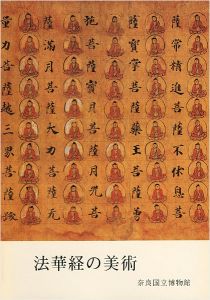 薩常精進菩薩不休息菩
薩寶掌菩薩藥王菩薩勇
施菩薩寶月菩薩月光菩
薩滿月菩薩大力菩薩无
量力菩薩越三界菩薩跋
法華経の美術
奈良国立博物館